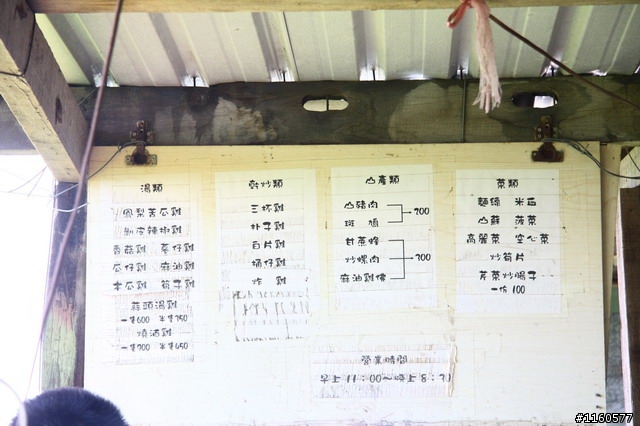 湯類
鳳梨苦瓜雞
剝皮辣椒雞
香菇雞 蔘仔雞
瓜仔雞 麻油雞
木瓜雞 筍子雞
蒜頭湯雞
一隻600 半隻350
燒酒雞
乾炒類
三杯雞
朴子雞
白片雞
桶仔雞
炸 雞
山產類
山豬肉
斑 鳩
200
甘蔗蜂
炒螺肉
200
菜類
麵線 米
山蘇 菠菜
高麗菜 空心菜
炒筍片
芹菜炒腸子
一份100
營業時間
早上11:00~晚上8:30
#1160577